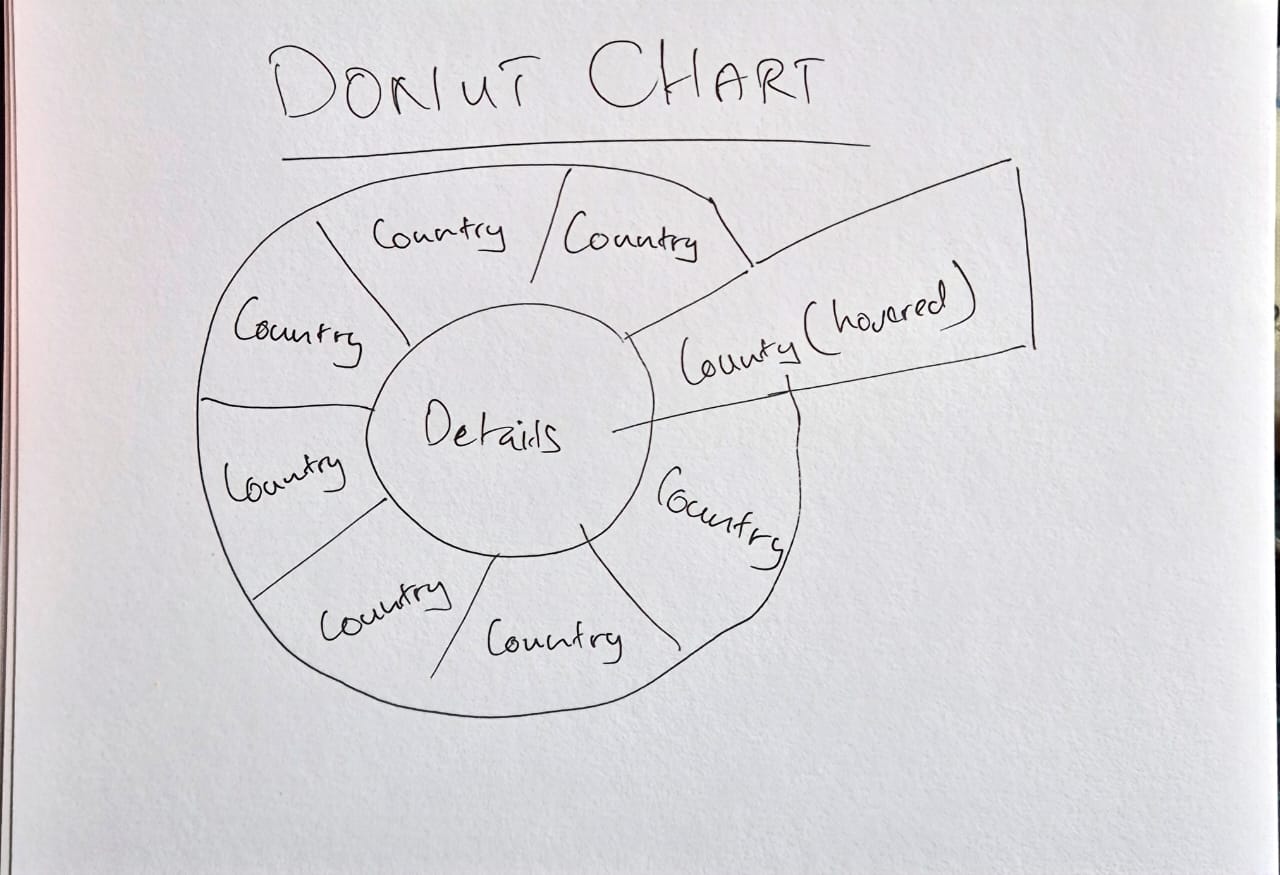 DONUT CHART
Country
Country
Country
County (hovered)
Details
Country
Country
Country
Country